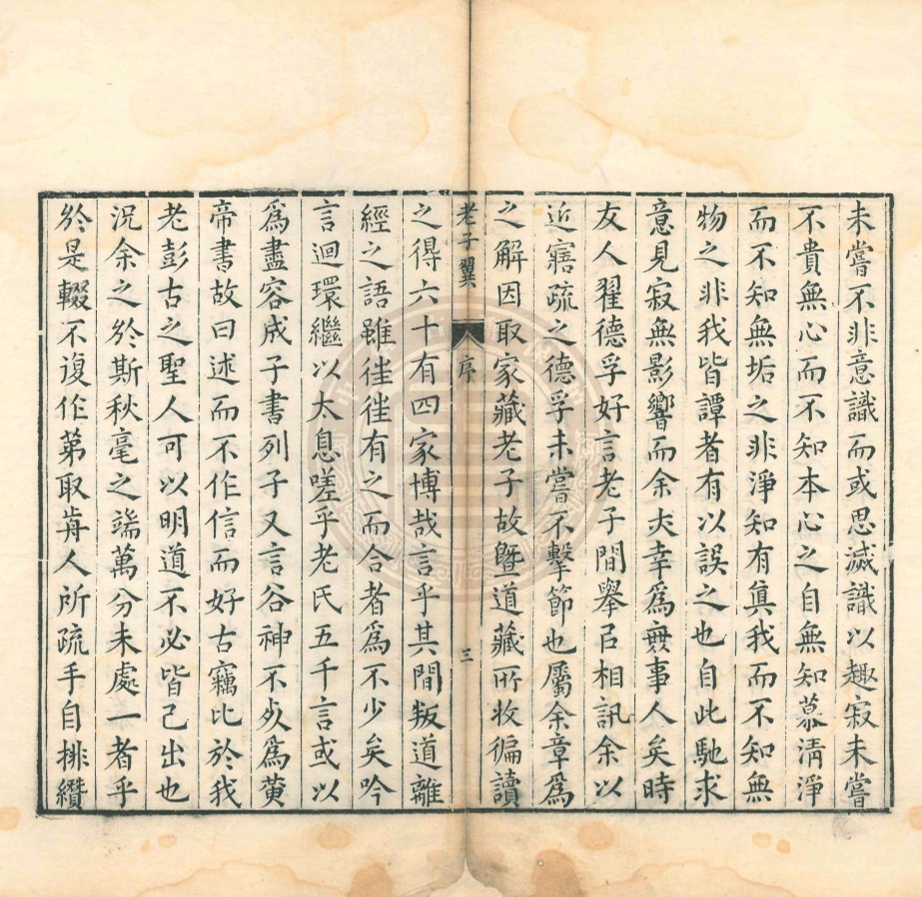 未嘗不非意識而或思滅識以趣寂未嘗
不貴無心而不知本心之自無知慕清淨
而不知無垢之非淨知有真我而不知無
物之非我皆譚者有以誤之也自此馳求
意見寂無影響而余夫幸為無事人矣時
友人翟德孚好言老子間舉以相訊余以
近寤疏之德孚未嘗不擊節也屬余章為
之解因取家藏老子故暨道藏所收徧讀
老子翼
序
三
之得六十有四家博哉言乎其間叛道離
經之語雖徃徃有之而合者為不少矣吟
言迴環繼以太息嗟乎老氏五千言或以
為盡容成子書列子又言谷神不死為黃
帝書故曰述而不作信而好古竊比於我
老彭古之聖人可以明道不必皆己出也
況余之於斯秋毫之端萬分未處一者乎
於是輟不復作第取前人所疏手自排纘